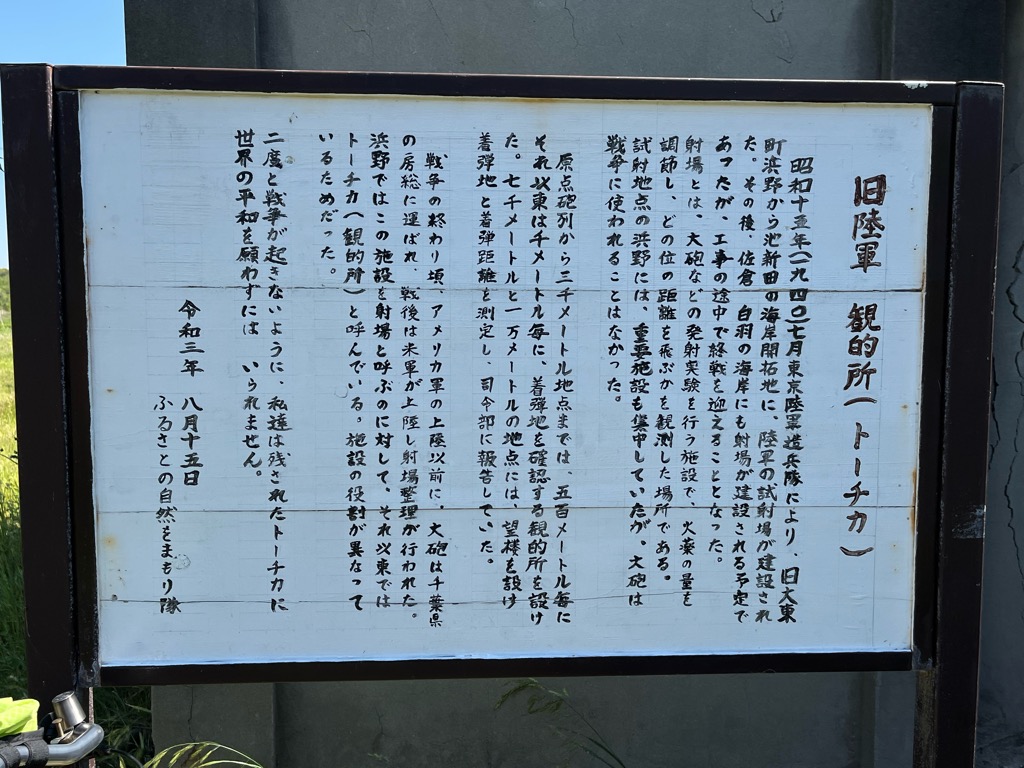 旧陸軍 観的所(トーチカ)
昭和十五年(一九四〇)七月東京陸軍造兵隊により、旧大東
町浜野から池新田の海岸開拓地に、陸軍の試射場が建設され
た。その後、佐倉、白羽の海岸にも射場が建設される予定で
あったが、工事の途中で終戦を迎えることとなった。
射場とは、大砲などの発射実験を行う施設で、火薬の量を
調節し、どの位の距離を飛ぶかを観測した場所である。
試射地点の浜野には、重要施設も集中していたが、大砲は
戦争に使われることはなかった。
原点砲列から三千メートル地点までは、五百メートル毎に
それ以東は千メートル毎に、着弾地を確認する観的所を設け
た。七千メートルと一万メートルの地点には、望楼を設け
着弾地と着弾距離を測定し、司令部に報告していた。
戦争の終わり頃、アメリカ軍の上陸以前に、大砲は千葉県
の房総に運ばれ、戦後は米軍が上陸し射場整理が行われた。
浜野ではこの施設を射場と呼ぶのに対して、それ以東では
トーチカ(観的所)と呼んでいる。施設の役割が異なって
いるためだった。
二度と戦争が起きないように、私達は残されたトーチカに
世界の平和を願わずには いられません。
令和三年 八月十五日
ふるさとの自然をまもり隊